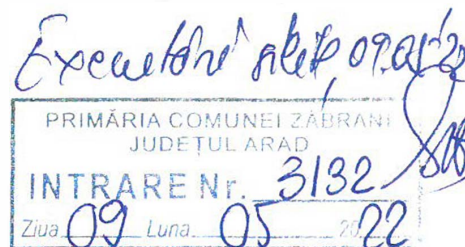 PRIMĂRIA COMUNEI ZĂBRANI
JUDEȚUL ARAD
INTRARE Nr. 3132
Ziua 09 Luna 05 2022